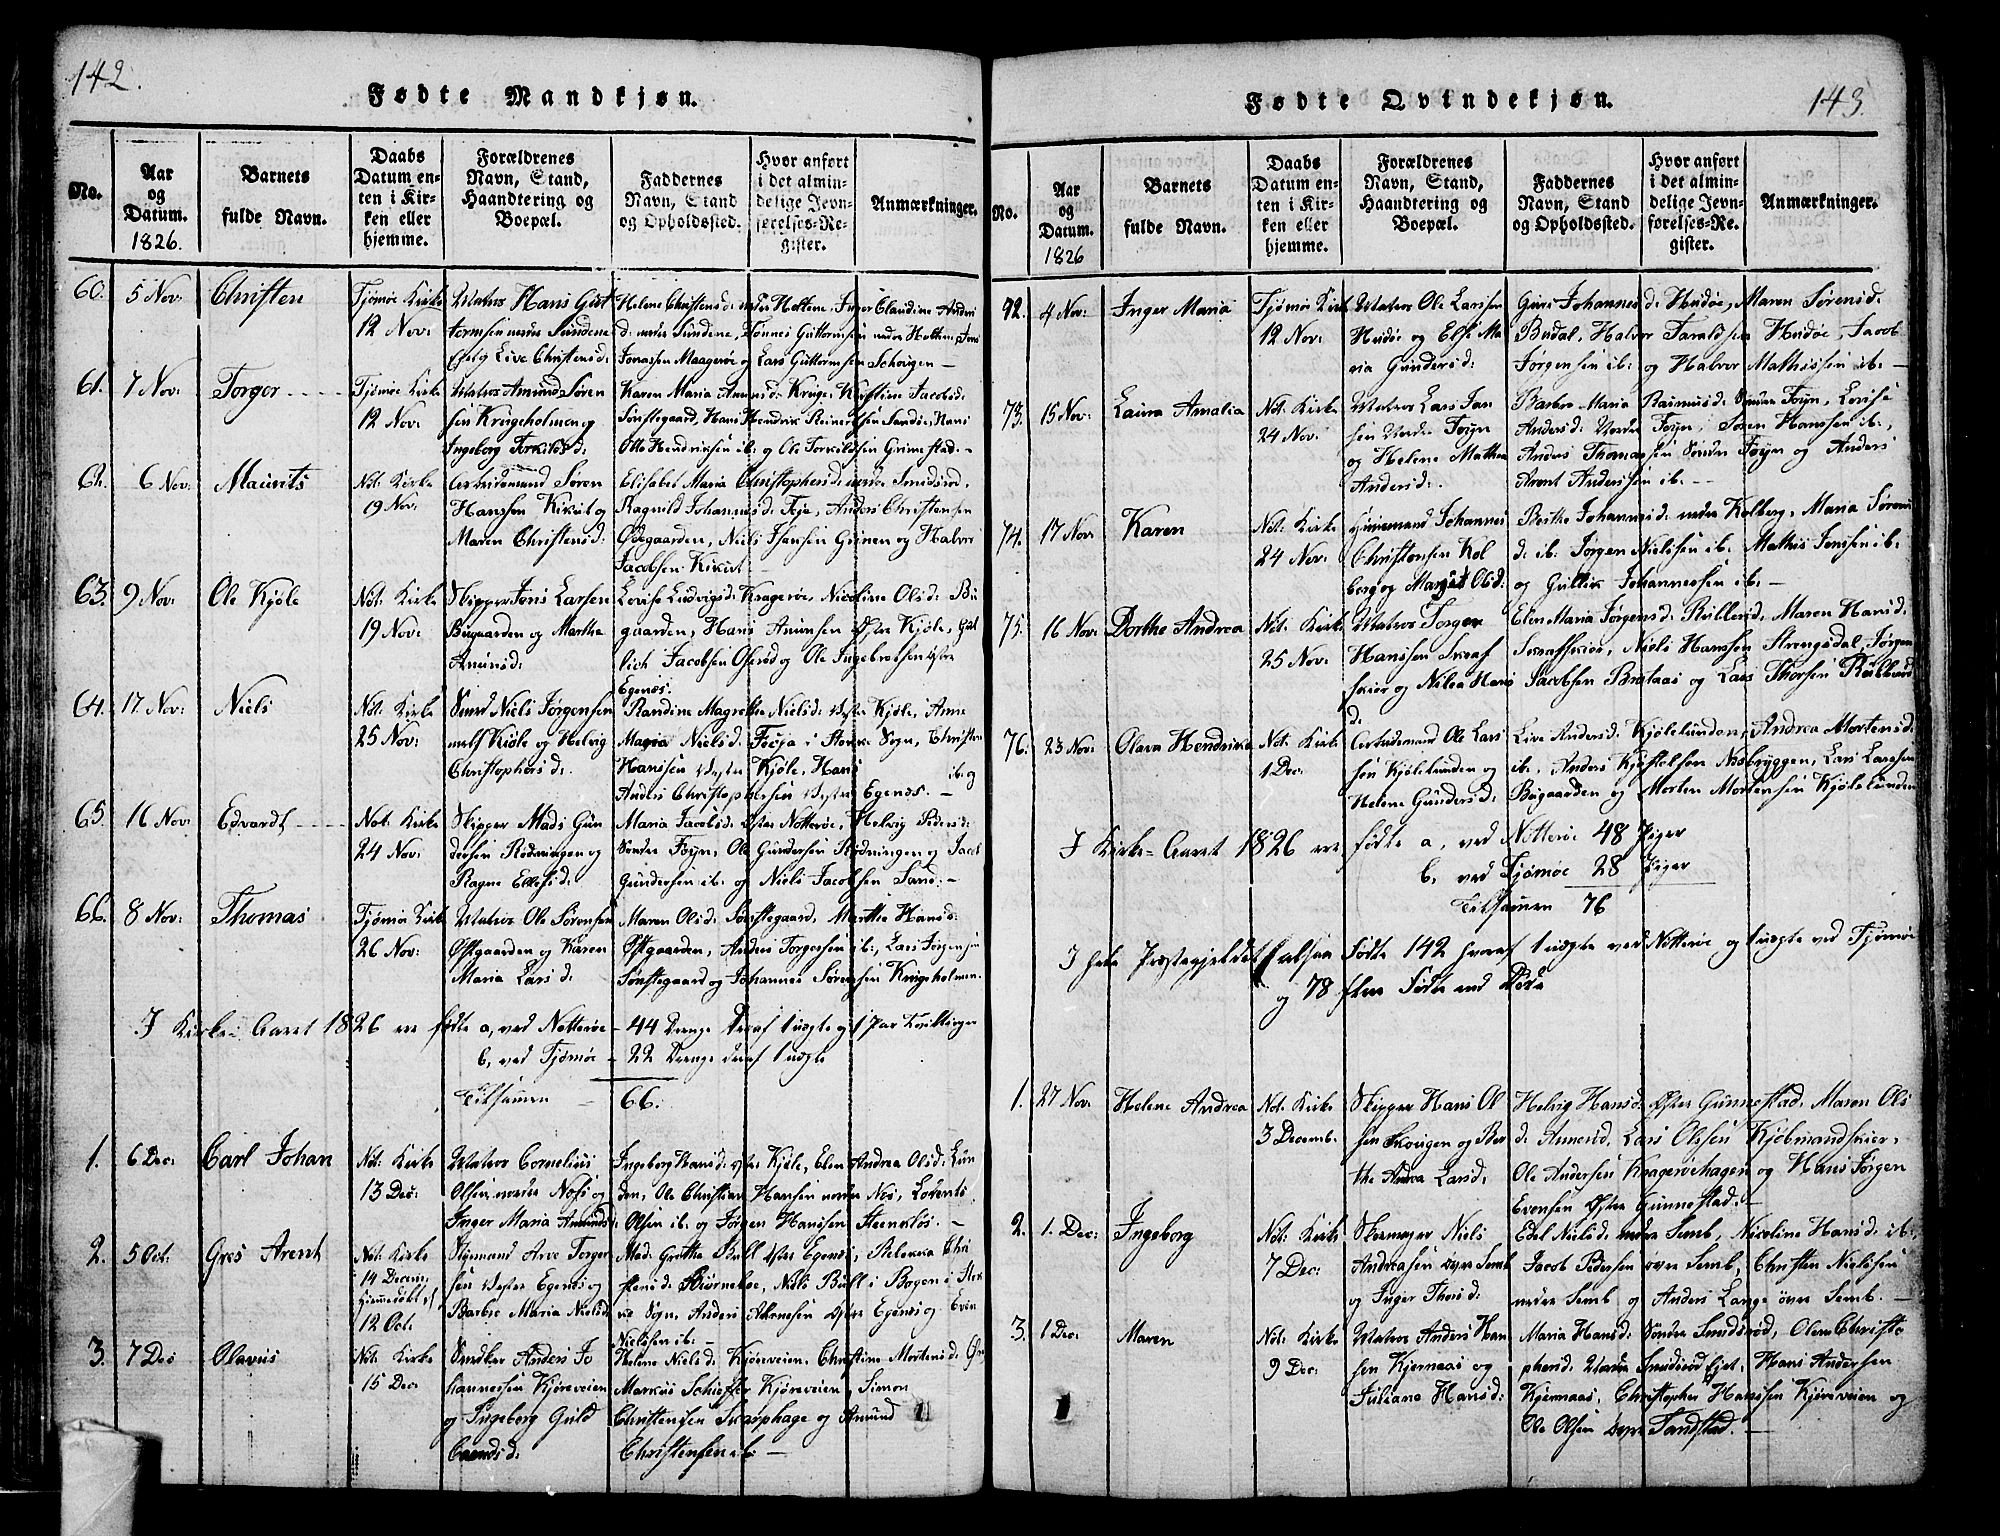 142.
Fødte Mandkjøn.
No.
Aar og Datum. 1826.
Barnets fulde Navn.
Daabs Datum enten i Kirken eller hjemme.
Forældrenes Navn, Stand, Haandtering og Boepæl.
Faddernes Navn, Stand og Opholdssted.
Hvor anført i det almindelige Jevnførelses-Register.
Anmærkninger.
60. 5 Nov: Christen
Tjømøe Kirke 12 Nov:
Matros Hans Gut
tormsen nedre Sundene
Live Christensd:
Helene Christensd: nedre Holtene, Inger Claudine Anders
d: nedre Sundene, Tønnes Guttormsen nedre Holtene, Jens
Jonassen Maagerøe og Lars Guttormsen Solvigen —
61. 7 Nov: Torger
Tjømøe Kirke 12 Nov:
Matros Amund Sören
sen Krugeholmen og
Ingeborg Torkilds d:
Karen Maria Amunds d: Kruge, Kirstine Jacobs d:
Sønstegaard, Hans Hendrik Reinertsen Sandøe, Hans
Otto Hendriksen ib: og Ole Torkildsen Grimestad. —
62. 6 Nov: Maurits
Not: Kirke 19 Nov:
Arbeidsmand Sören
Hanssen Kirkut og
Maren Christensd:
Elisabet Maria Christophersd: nedre Smidsrød,
Ragnild Johannesd: Teje, Anders Christensen
Ødegaarden, Niels Isaksen Grinen og Halvor
Jacobsen Kirkut. —
63. 9 Nov: Ole Kjøle
Not: Kirke 19 Nov:
Skipper Jens Larsen
Bugaarden og Marthe
Amunsd:
Lovise Ludvigsd: Kragerøe, Nicoline Olsd: Bu
gaarden, Hans Amunsen Østre Kjøle, Gul
lich Jacobsen Oserød og Ole Ingebretsen østre
Egenæs.
64. 17 Nov: Niels
Not: Kirke 25 Nov:
Smed Niels Jorgensen
melf Kjøle og Helvig
Christophersd:
Randine Magrethe Nielsd: Vestre Kjøle, Anne
Maria Nielsd: Feuja i Stokke Sogn, Christen
Hanssen Vestre Kjøle, Hans ib: og
Anders Christophersen Vestre Egenæs. —
65. 16 Nov: Edvardt
Not: Kirke 24 Nov:
Skipper Mads Gun
dersen Rødningen og
Ragne Ellefsd:
Maria Jacobsd: Østre Nøtterøe, Helvig Pedersd:
Søndre Føyn, Ole Gundersen Rødningen og Jacob
Gundersen ib: og Niels Jacobsen Sand: —
66. 8 Nov: Thomas
Tjømøe Kirke 26 Nov:
Matros Ole Sörensen
Østgaarden og Karen
Maria Lars d:
Maren Olsd: Sønstegaard, Marthe Hansd:
Østgaarden, Anders Torgersen ib:, Lars Jørgensen
Sønstegaard og Johannes Sørensen Krugeholmen.
I Kirke-Aaret 1826 ere fødte a, ved Nøtterøe — 44 Drenge deraf 1 uægte og 1 Par Tvillinger
b, ved Tjømøe — 22 Drenge deraf 1 uægte
Tilsammen — 66.
1. 6 Dec: Carl Johan
Not: Kirke 13 Dec:
Matros Cornelius
Olsen nordre Næs og
Inger Maria Amunds
Ingeborg Hansd: vestre Kjøle, Elen Andrea Olsd: Lun
den, Ole Christian Hansen nordre Næs, Lorents
Olsen ib: og Jørgen Hanssen Steenkløs. —
2. 5 Oct: Gres Arent
Not: Kirke 14 Decem:
Hjemmedøbt
12 Oct:
Styrmand Arve Torger
sen Vestre Egenes og
Barbro Maria Nielsd
Mad: Grethe Bull østre Egenes, Rebekka Chri
stensd: Biørnebøe, Niels Bull i Bogen i Stok
ke Sogn, Anders Abrnesen østre Egenes og Even
Nielssen ib: —
3. 7 Dec Olavus
Not: Kirke 15 Dec:
Snedker Anders Jo
hannessen Kjøreveien
og Ingeborg Guld
brands d:
Helene Niels d: Kjøreveien, Christine Mortens d: Ør
Markus Schiefte Kjøreveien, Simon
Christensen Skarphage og Amund
Christensen ib: —
143.
Fødte Qvindekjøn.
No.
Aar og Datum. 1826
Barnets fulde Navn.
Daabs Datum enten i Kirken eller hjemme.
Forældrenes Navn, Stand, Haandtering og Boepæl.
Faddernes Navn, Stand og Opholdssted.
Hvor anført i det almindelige Jevnførelses-Register.
Anmærkninger.
72. 4 Nov: Inger Maria
Tjømøe Kirk 12 Nov:
Matros Ole Larssen
Hudøe og Else Ma
ria Gundersd:
Guro Johannesd: Hudøe, Maren Sørensd:
Budal, Halvor Taraldsen Hudøe, Jacob
Jørgensen ib: og Halvor Mathissen ib: —
73. 15 Nov: Laura Amalia
Not: Kirke 24 Nov:
Matros Lars Jan
sen Nordre Føyn
og Helene Mathea
Andersd:
Barbro Maria Rasmusd: Søndre Føyn, Lovise
Andersd: Nordre Føyn, Sören Hanssen ib:,
Anders Thomassen Søndre Føyn og Anders
Arent Anderssen ib: —
74. 17 Nov: Karen
Not: Kirke 24 Nov:
Huusmand Johannes
Christensen Kol
berg og Margit Olsd:
Berthe Johannesd: nedre Kolberg, Maria Sörens
d: ib: Jørgen Nielssen ib: Mathis Jonssen ib:
og Gullik Johannessen ib: —
75. 16 Nov: Dorthe Andrea
Not: Kirke 25 Nov:
Matros Torger
Hanssen Skraf
skier og Nilea Hans
d:
Elen Maria Jørgensd: Ræbbersd, Maren Hansd:
Scrafskier, Niels Hanssen Strengsdal, Jørgen
Jacobsen Brataas og Lars Thorsen
76. 23 Nov: Olava Hendrikke
Not: Kirke 1 Dec:
Arbeidsmand Ole Lars
sen Kjølelunden og
Helene Gundersd:
Live Andersd: Kjølelunden, Andrea Mortensd:
ib:, Anders Kjøstelsen Næsbryggen, Lars Larssen
Bugaarden og Morten Mortensen Kjølelunden
I Kirke-Aaret 1826 ere fødte a, ved Nøtterøe 48 Piger
b, ved Tjømøe 28 Piger
Tilsammen 76
I hele Præstegjeldet altsaa Fødte 142 hvoraf 1 uægte ved Nøtterøe og 1 uægte ved Tjømøe
og 78 flere Fødte end Døde
1. 27 Nov: Helene Andrea
Not: Kirke 3 Decemb.
Skipper Hans Ol
sen Skovigen og Ber
the Andrea Larsd:
Helvig Hansd: Østre Gunnestad. Maren Ols
d: Aanerud, Lars Olssen Kjøbmandskier,
Ole Andersen Kragerøehagen og Hans Jørgen
Evensen Østre Gunnestad. —
2. 1. Dec: Ingeborg
Not: Kirke 7 Dec:
Skræmager Niels
Andreasen øvre Semb
og Inger Thors d:
Edel Nielsd: nedre Semb, Nicoline Hansd: ib:
Jacob Pedersen øvre Semb, Christen Nielssen
nedre Semb og Anders Lange øvre Semb. —
3. 1 Dec: Maren
Not: Kirke 9 Dec:
Matros Anders Han
sen Kjernaas og
Juliane Hansd:
Maria Hansd: Søndre Smidsrød, Olea Christo
phersd: Nordre Smidsrød Ejet, Hans Andersen
Kjernaas, Christopher Hanssen Kjøreveien og
Ole Olsen Tandstad. —